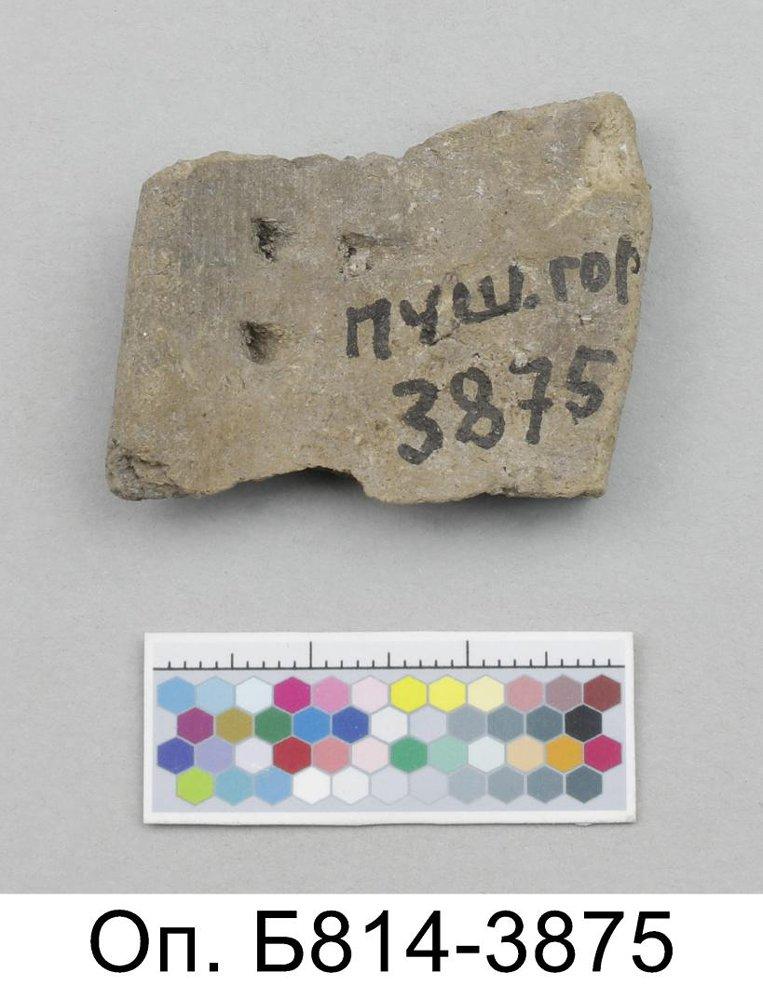 ПУШ.ГОР
3875
Оп. Б814-3875